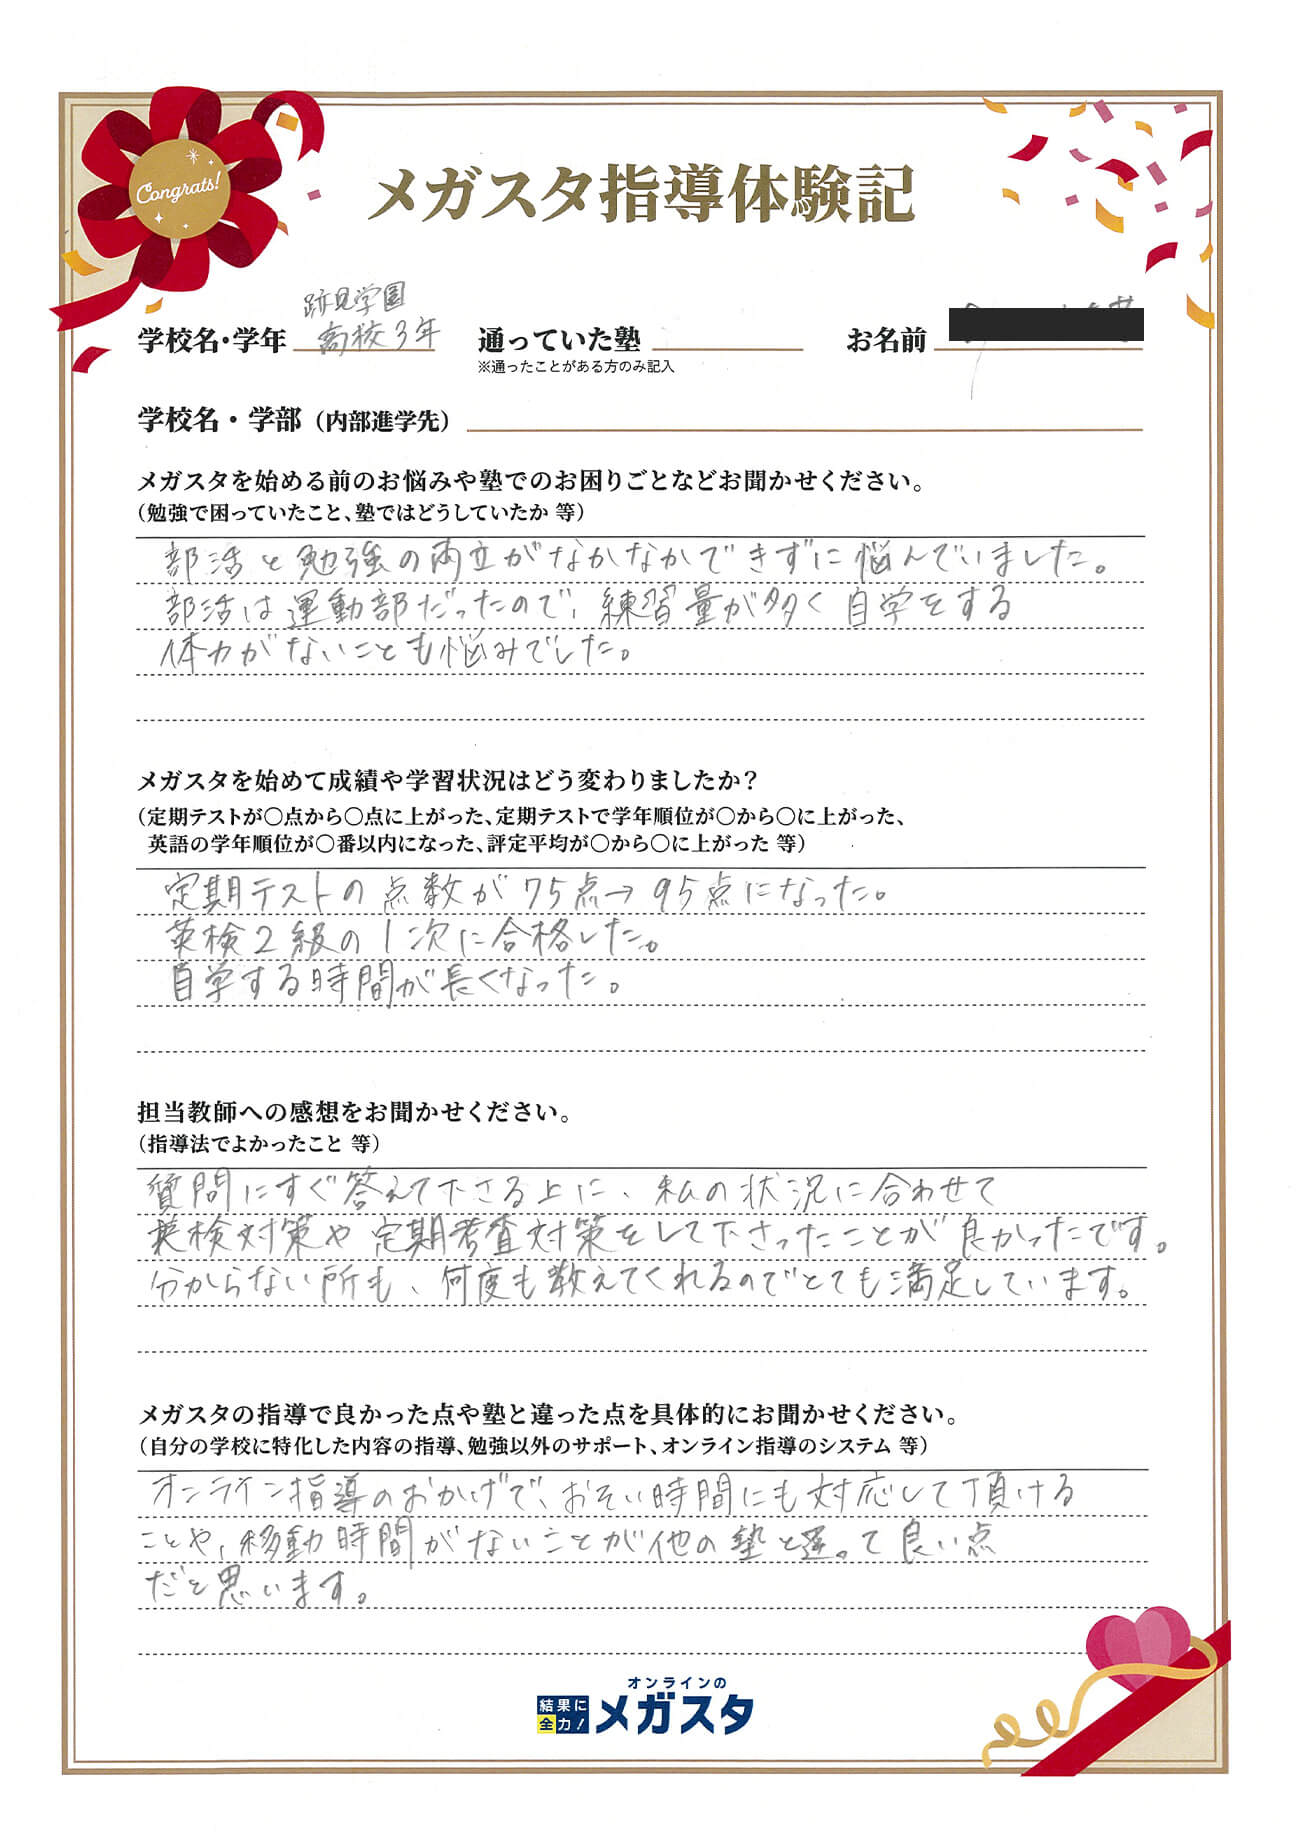 Congrats!
メガスタ指導体験記
学校名・学年 跡見学園 高校3年 通っていた塾 お名前
※通ったことがある方のみ記入
学校名・学部（内部進学先）
メガスタを始める前のお悩みや塾でのお困りごとなどお聞かせください。
（勉強で困っていたこと、塾ではどうしていたか 等）
部活と勉強の両立がなかなかできずに悩んでいました。
部活は運動部だったので、練習量が多く自学をする
体力がないことも悩みでした。
メガスタを始めて成績や学習状況はどう変わりましたか？
（定期テストが〇点から〇点に上がった、定期テストで学年順位が〇から〇に上がった、
英語の学年順位が〇番以内になった、評定平均が〇から〇に上がった 等）
定期テストの点数が75点→95点になった。
英検2級の1次に合格した。
自学する時間が長くなった。
担当教師への感想をお聞かせください。
（指導法でよかったこと 等）
質問にすぐ答えて下さる上に、私の状況に合わせて
英検対策や定期考査対策をして下さったことが良かったです。
分からない所も、何度も教えてくれるのでとても満足しています。
メガスタの指導で良かった点や塾と違った点を具体的にお聞かせください。
（自分の学校に特化した内容の指導、勉強以外のサポート、オンライン指導のシステム 等）
オンライン指導のおかげで、おそい時間にも対応して頂ける
ことや、移動時間がないことが他の塾と違って良い点
だと思います。
オンラインの
結果に全力！ メガスタ